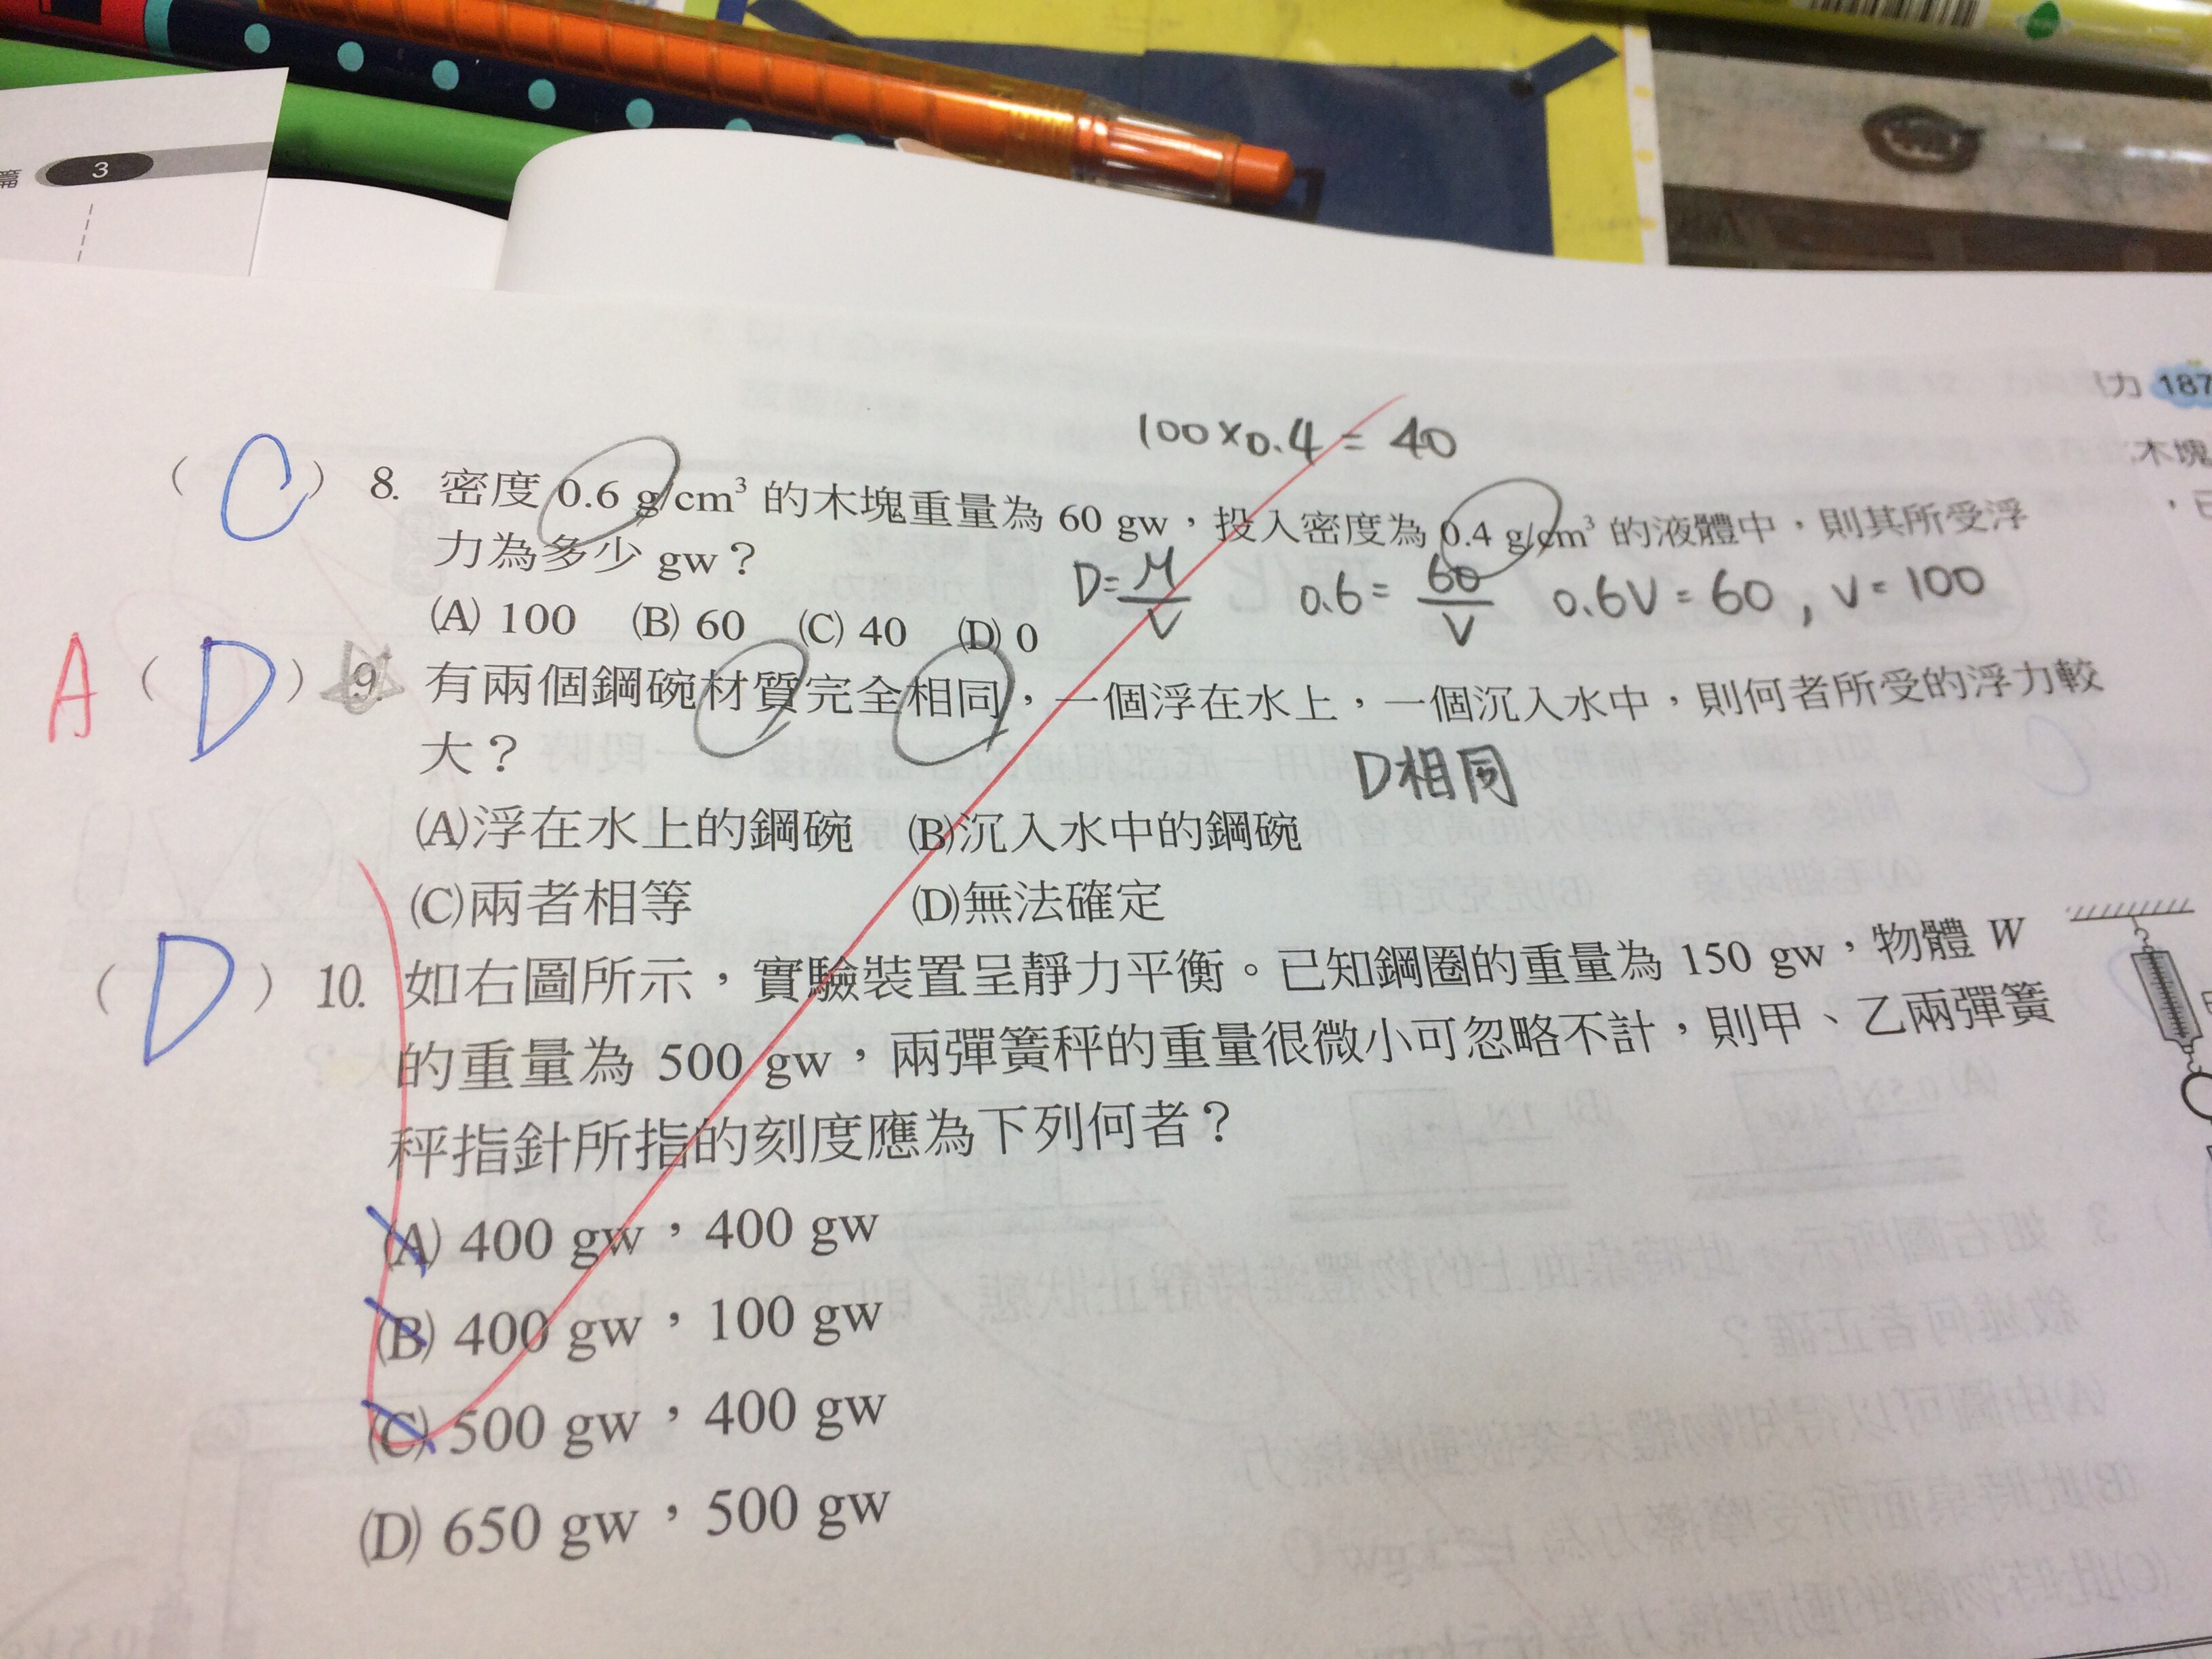 篇 3
力 187
木塊
100×0.4=40
( C ) 8. 密度 0.6 g/cm³ 的木塊重量為 60 gw，投入密度為 0.4 g/cm³ 的液體中，則其所受浮
力為多少 gw？
D=M/V 0.6=60/V 0.6V=60，V=100
(A) 100 (B) 60 (C) 40 (D) 0
A ( D ) 9. 有兩個鋼碗材質完全相同，一個浮在水上，一個沉入水中，則何者所受的浮力較
大？
D相同
(A)浮在水上的鋼碗 (B)沉入水中的鋼碗
(C)兩者相等 (D)無法確定
( D ) 10. 如右圖所示，實驗裝置呈靜力平衡。已知鋼圈的重量為 150 gw，物體 W
的重量為 500 gw，兩彈簧秤的重量很微小可忽略不計，則甲、乙兩彈簧
秤指針所指的刻度應為下列何者？
(A) 400 gw，400 gw
(B) 400 gw，100 gw
(C) 500 gw，400 gw
(D) 650 gw，500 gw